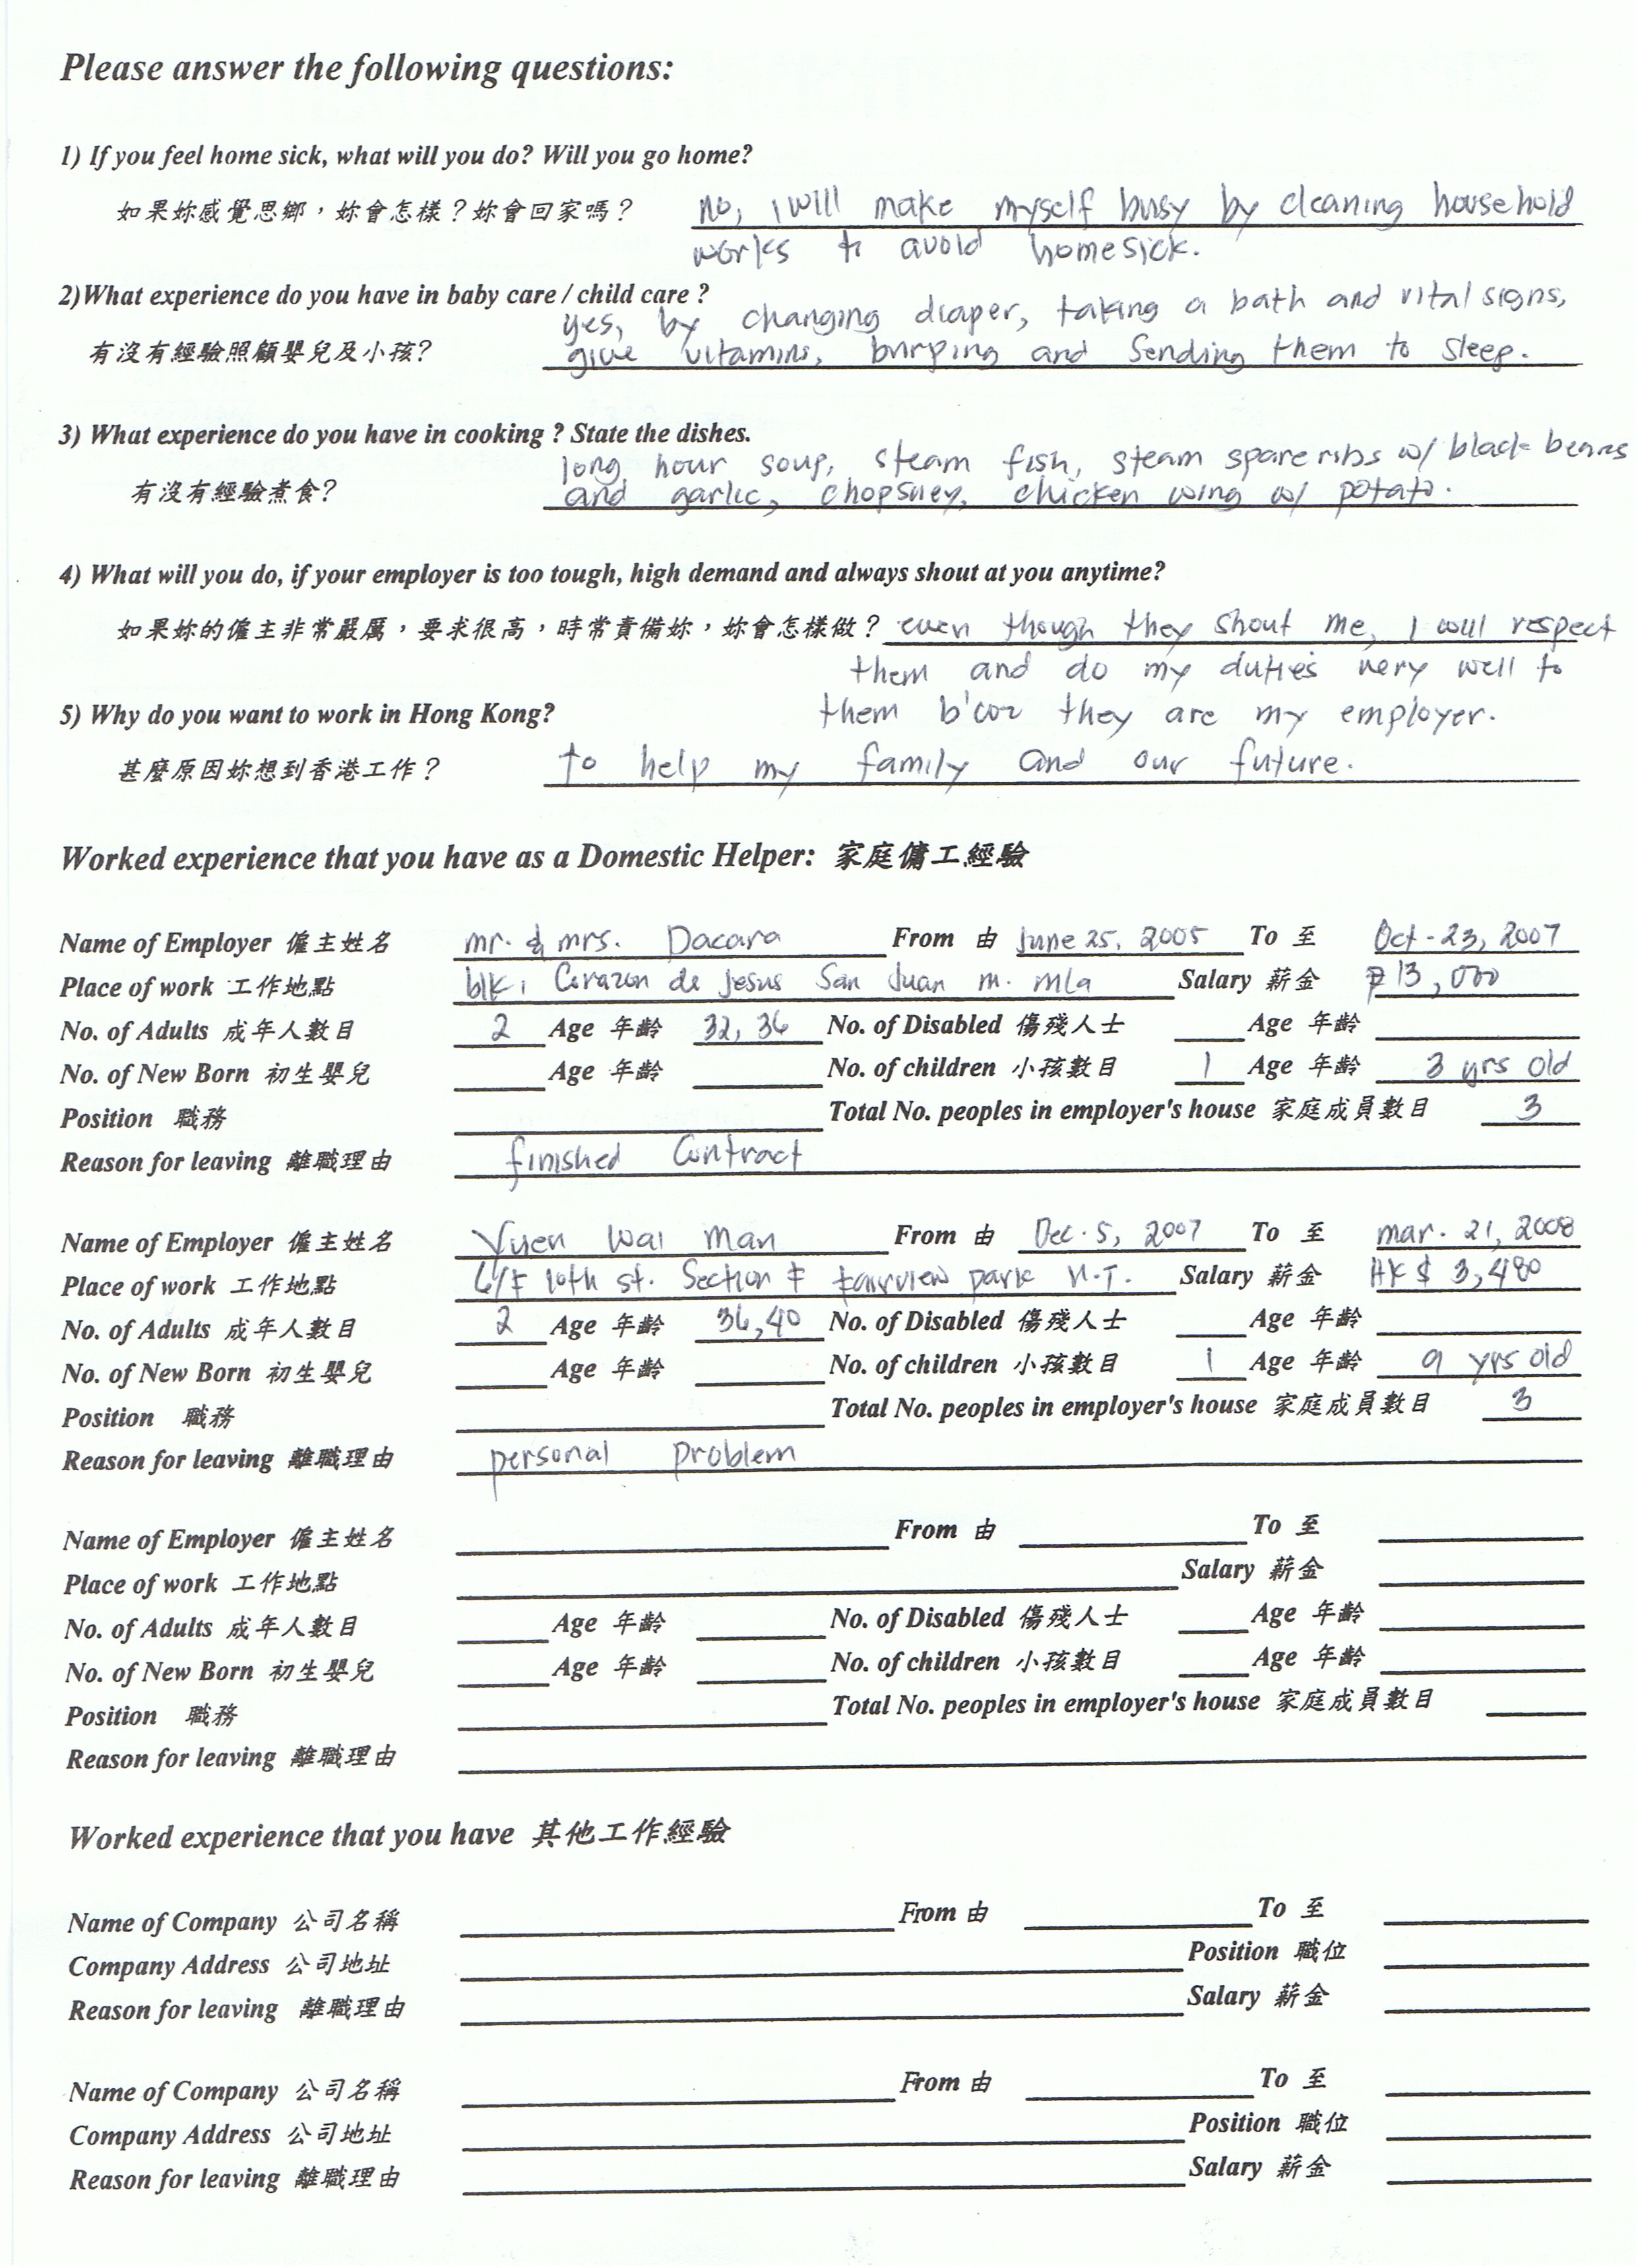 Please answer the following questions:
1) If you feel home sick, what will you do? Will you go home?
如果妳感覺思鄉，妳會怎樣？妳會回家嗎？ No, I will make myself busy by cleaning household
works to avoid homesick.
2)What experience do you have in baby care / child care ?
yes, by changing diaper, taking a bath and vital signs,
有沒有經驗照顧嬰兒及小孩? give vitamins, burping and sending them to sleep.
3) What experience do you have in cooking ? State the dishes.
long hour soup, steam fish, steam spareribs w/ black beans
有沒有經驗煮食? and garlic, chopsuey, chicken wing w/ potato.
4) What will you do, if your employer is too tough, high demand and always shout at you anytime?
如果妳的僱主非常嚴厲，要求很高，時常責備妳，妳會怎樣做？ even though they shout me, I will respect
them and do my duties very well to
5) Why do you want to work in Hong Kong? them b'coz they are my employer.
甚麼原因妳想到香港工作？ to help my family and our future.
Worked experience that you have as a Domestic Helper: 家庭傭工經驗
Name of Employer 僱主姓名 mr. & mrs. Dacara From 由 June 25, 2005 To 至 Oct-23, 2007
Place of work 工作地點 blk1 Corazon de Jesus San Juan m. mla Salary 薪金 ₱13,000
No. of Adults 成年人數目 2 Age 年齡 32, 36 No. of Disabled 傷殘人士 Age 年齡
No. of New Born 初生嬰兒 Age 年齡 No. of children 小孩數目 1 Age 年齡 3 yrs old
Position 職務 Total No. peoples in employer's house 家庭成員數目 3
Reason for leaving 離職理由 finished Contract
Name of Employer 僱主姓名 Yuen Wai Man From 由 Dec. 5, 2007 To 至 mar. 21, 2008
Place of work 工作地點 10th st. Section F fairview park N.T. Salary 薪金 HK$ 3,480
No. of Adults 成年人數目 2 Age 年齡 36,40 No. of Disabled 傷殘人士 Age 年齡
No. of New Born 初生嬰兒 Age 年齡 No. of children 小孩數目 1 Age 年齡 9 yrs old
Position 職務 Total No. peoples in employer's house 家庭成員數目 3
Reason for leaving 離職理由 personal problem
Name of Employer 僱主姓名 From 由 To 至
Place of work 工作地點 Salary 薪金
No. of Adults 成年人數目 Age 年齡 No. of Disabled 傷殘人士 Age 年齡
No. of New Born 初生嬰兒 Age 年齡 No. of children 小孩數目 Age 年齡
Position 職務 Total No. peoples in employer's house 家庭成員數目
Reason for leaving 離職理由
Worked experience that you have 其他工作經驗
Name of Company 公司名稱 From 由 To 至
Company Address 公司地址 Position 職位
Reason for leaving 離職理由 Salary 薪金
Name of Company 公司名稱 From 由 To 至
Company Address 公司地址 Position 職位
Reason for leaving 離職理由 Salary 薪金